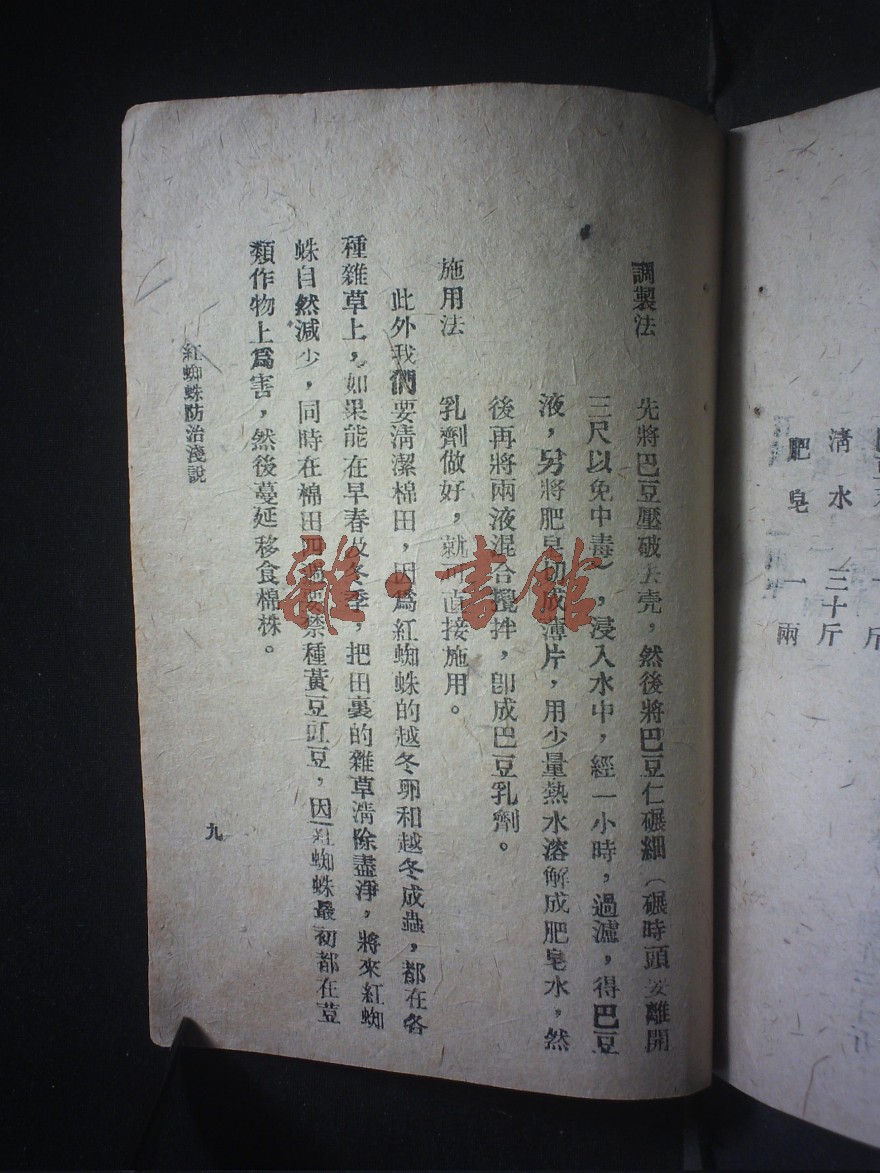 清水　三十斤
肥皂　一兩
調製法　先將巴豆壓破去壳，然後將巴豆仁碾細（碾時頭要離開
三尺以免中毒），浸入水中，經一小時，過濾，得巴豆
液，另將肥皂切成薄片，用少量熱水溶解成肥皂水，然
後再將兩液混合攪拌，卽成巴豆乳劑。
施用法　乳劑做好，就可直接施用。
此外我們要清潔棉田，因爲紅蜘蛛的越冬卵和越冬成蟲，都在各
種雜草上，如果能在早春及冬季，把田裏的雜草清除盡淨，將來紅蜘
蛛自然減少，同時在棉田四週要禁種黃豆豇豆，因紅蜘蛛最初都在荳
類作物上爲害，然後蔓延移食棉株。
紅蜘蛛防治淺說
九
雜·書館